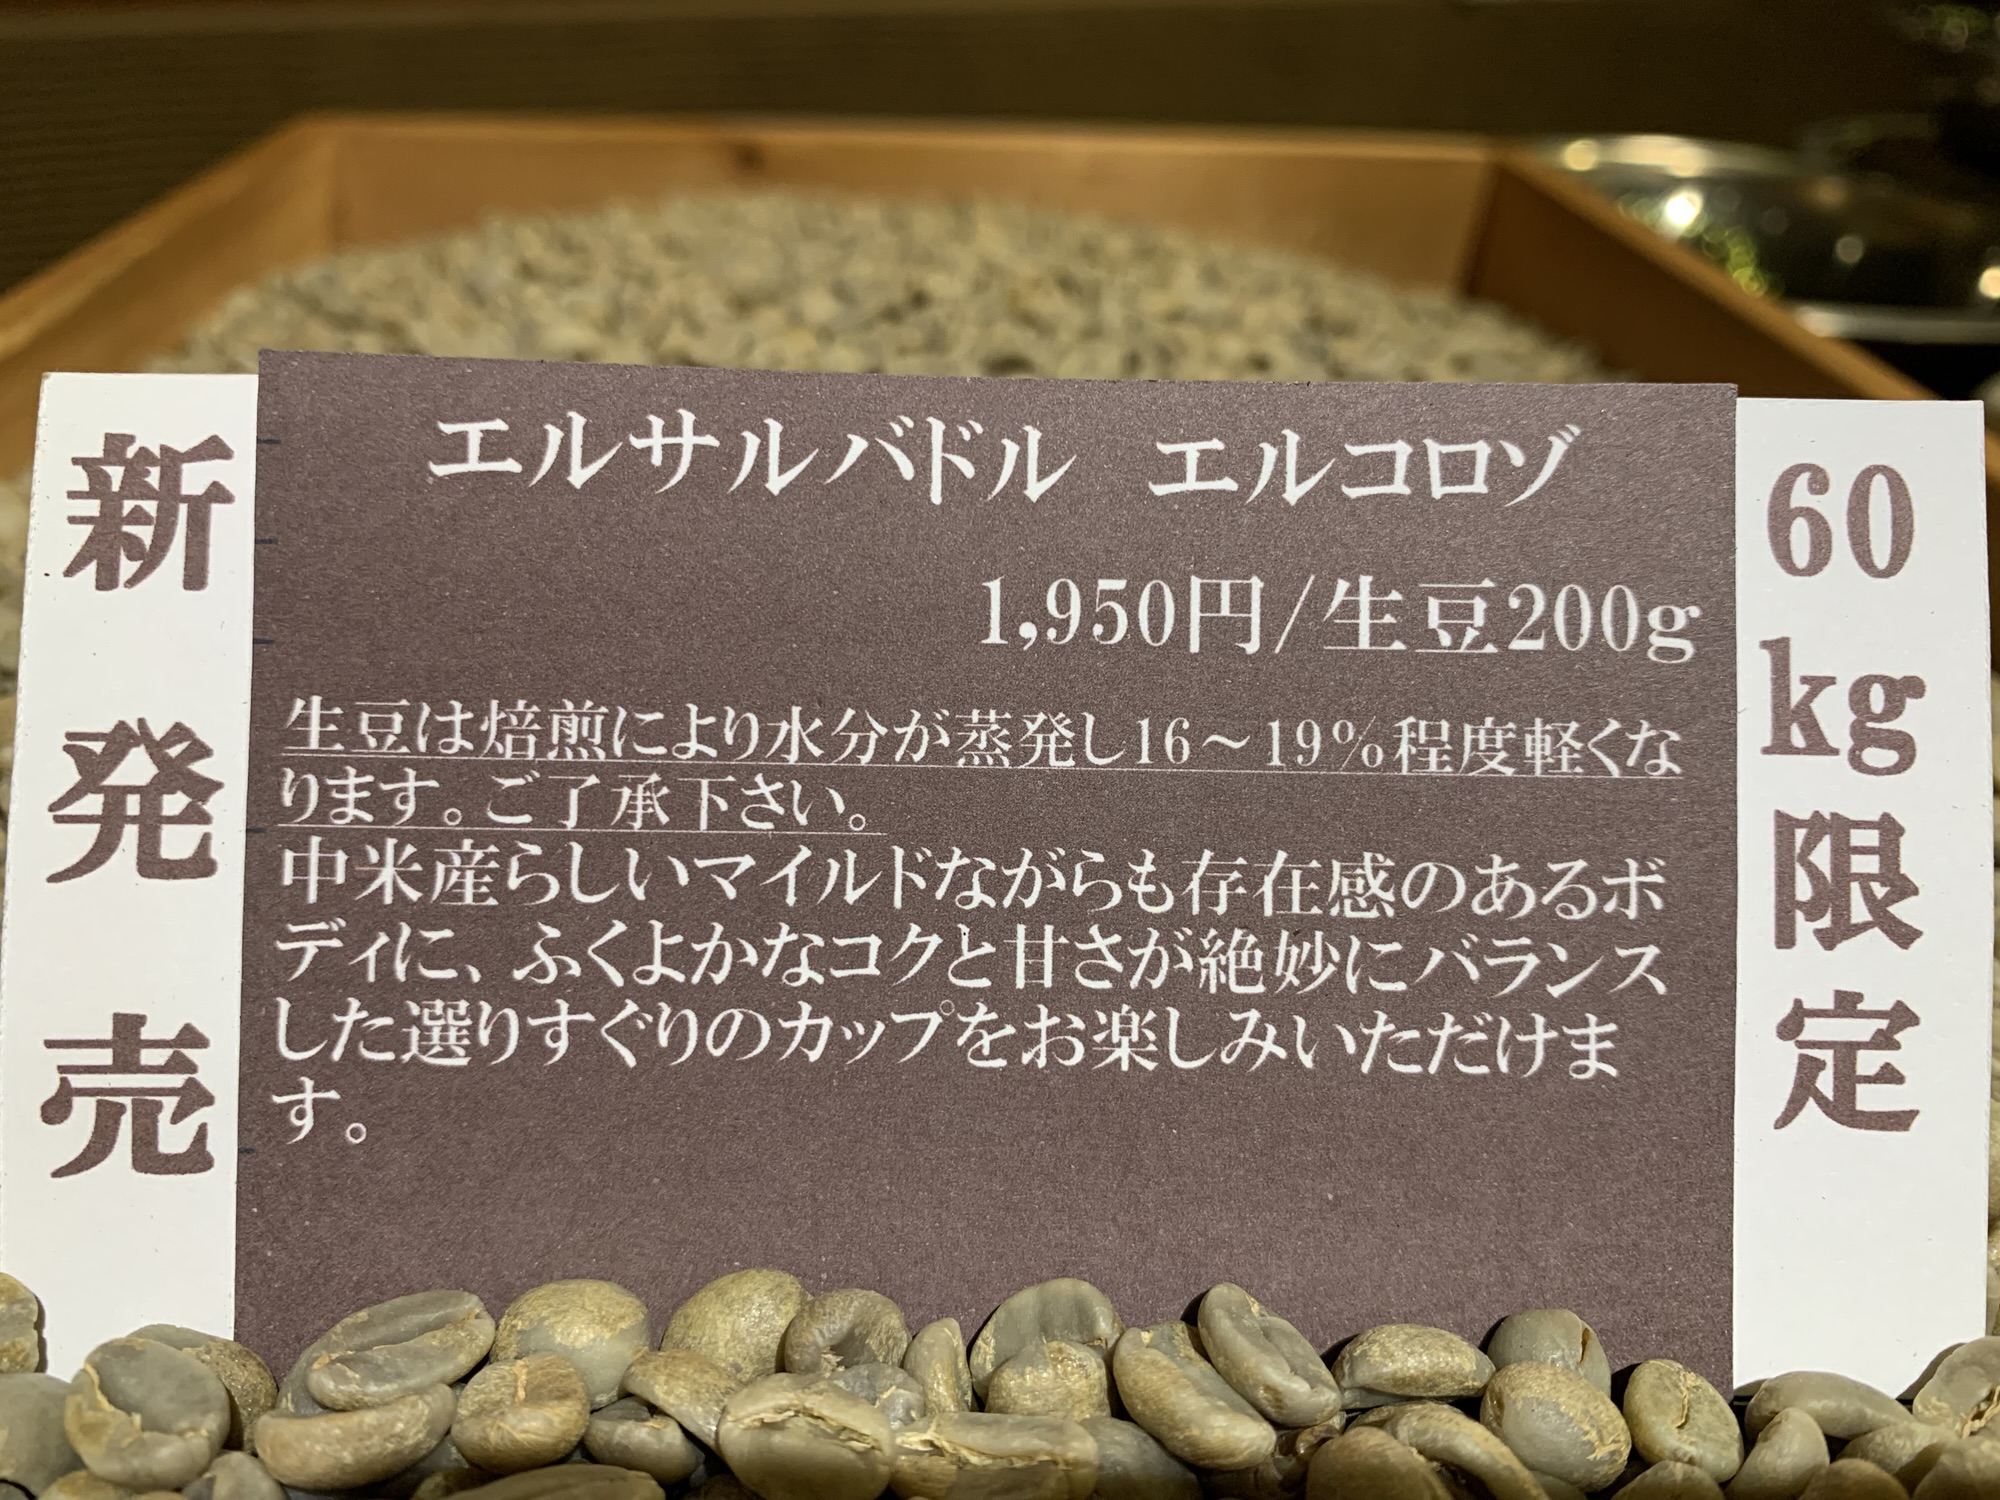 新発売
エルサルバドル エルコロゾ
1,950円/生豆200g
生豆は焙煎により水分が蒸発し16～19%程度軽くな
ります。ご了承下さい。
中米産らしいマイルドながらも存在感のあるボ
ディに、ふくよかなコクと甘さが絶妙にバランス
した選りすぐりのカップをお楽しみいただけま
す。
60kg限定